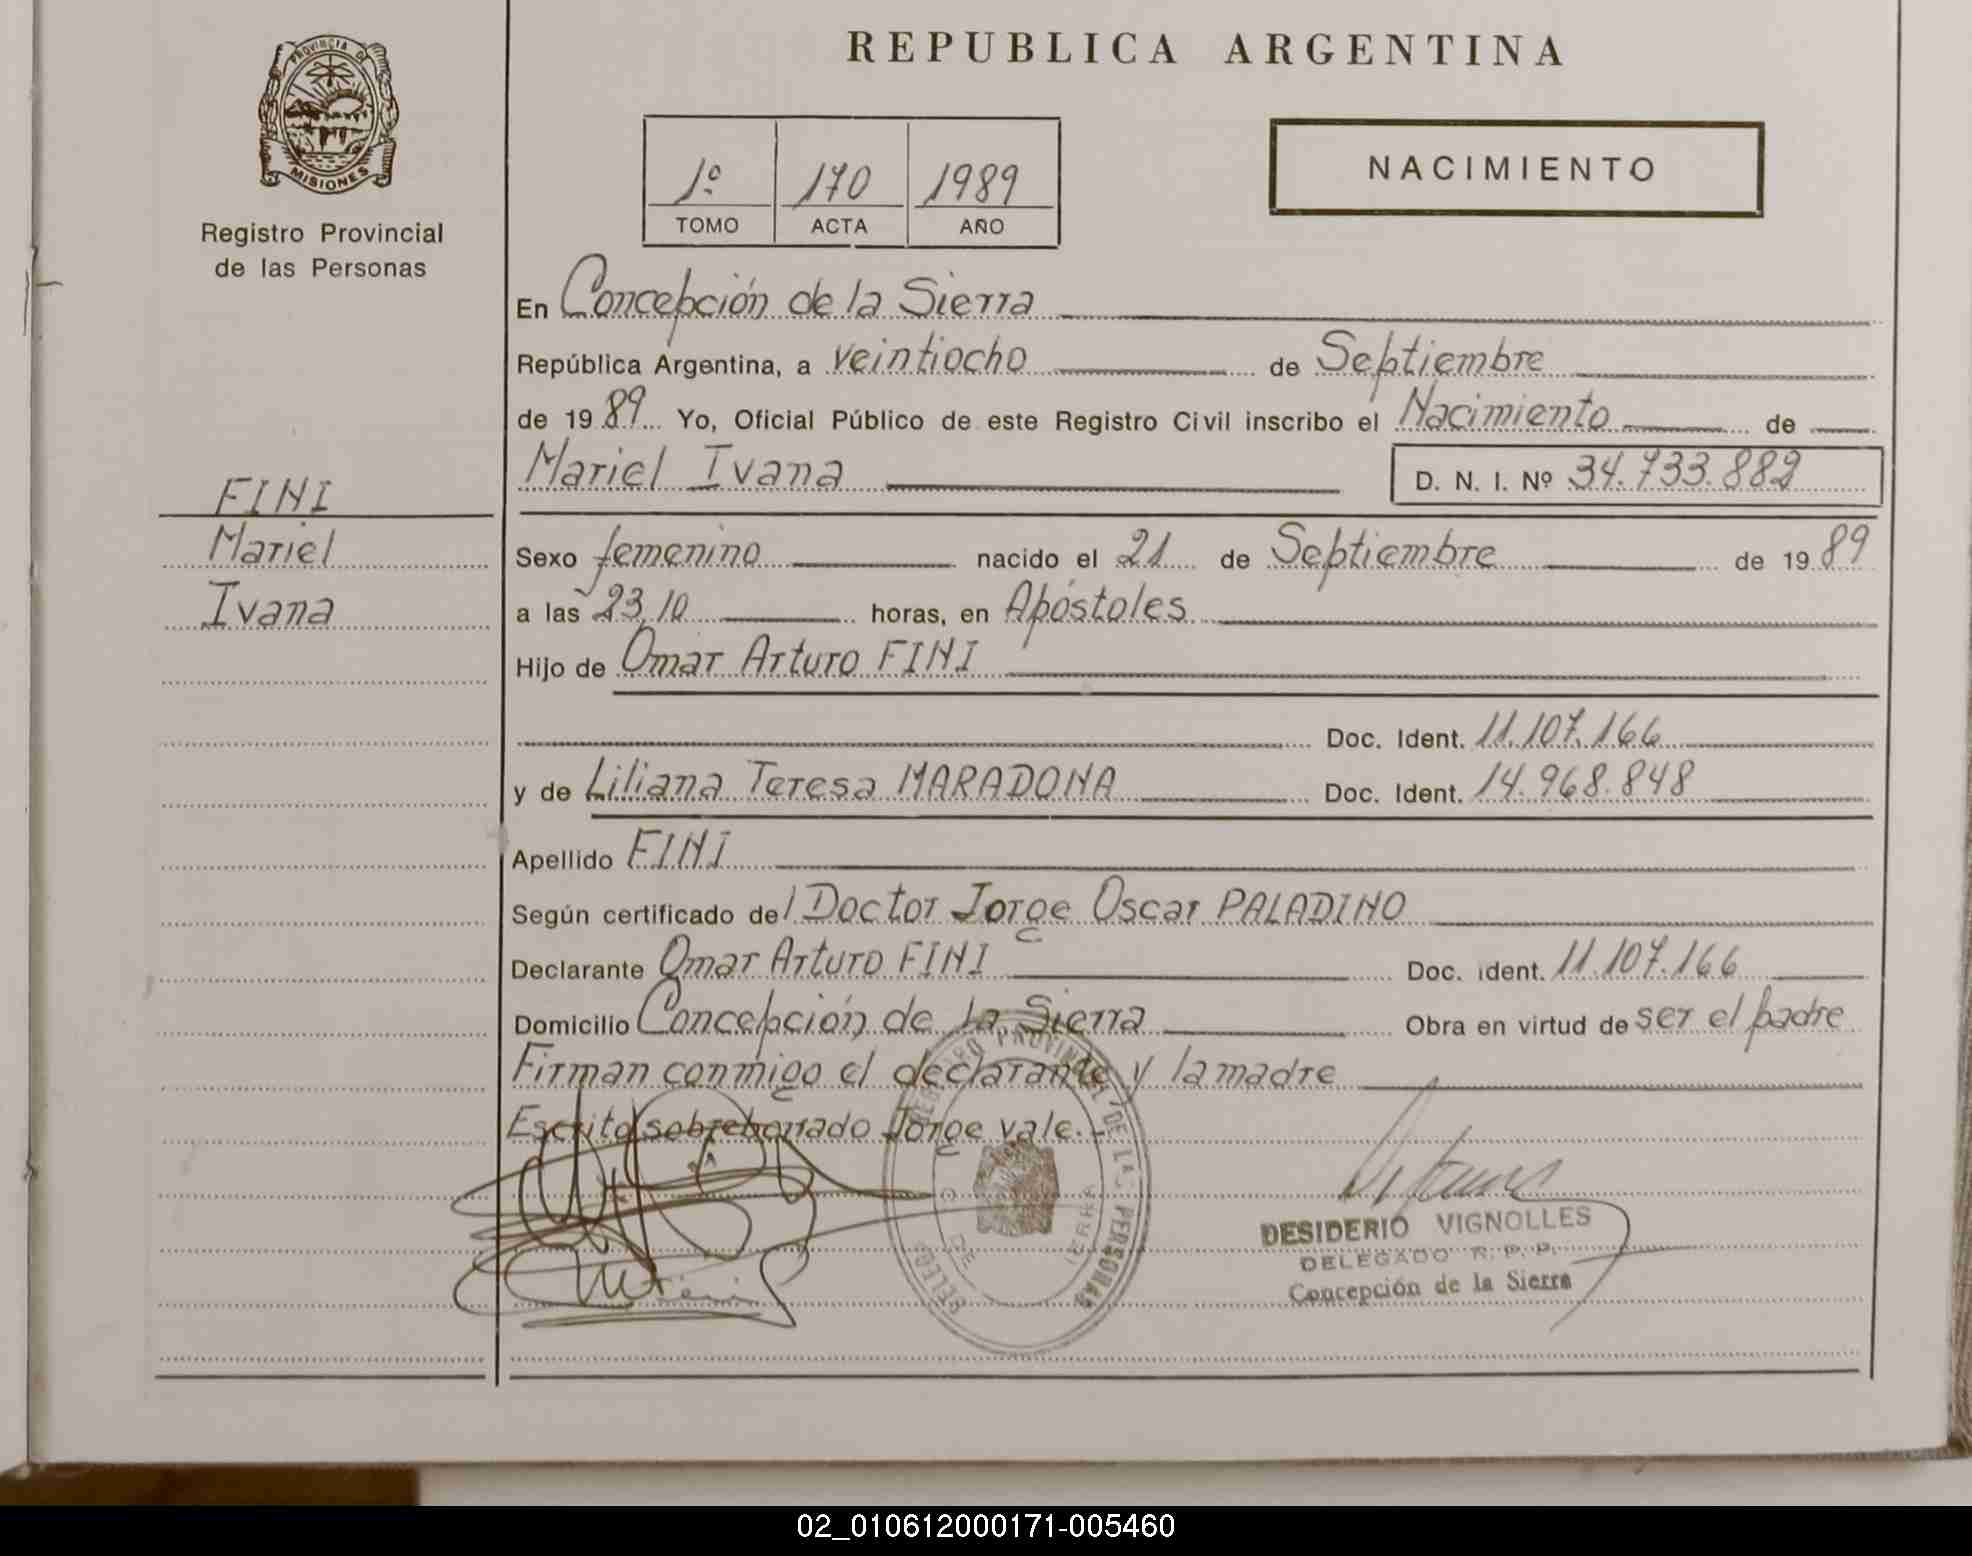 PROVINCIA D
MISIONES
Registro Provincial
de las Personas
FINI
Mariel
Ivana
REPUBLICA ARGENTINA
1º 170 1989
TOMO ACTA AÑO
NACIMIENTO
En Concepción de la Sierra
República Argentina, a veintiocho de Septiembre
de 1989 Yo, Oficial Público de este Registro Civil inscribo el Nacimiento de
Mariel Ivana D. N. I. Nº 34.733.882
Sexo femenino nacido el 21 de Septiembre de 1989
a las 23,10 horas, en Apóstoles
Hijo de Omar Arturo FINI
Doc. Ident. 11.107.166
y de Liliana Teresa MARADONA Doc. Ident. 14.968.848
Apellido FINI
Según certificado del Doctor Jorge Oscar PALADINO
Declarante Omar Arturo FINI Doc. ident. 11.107.166
Domicilio Concepción de la Sierra Obra en virtud de ser el padre
Firman conmigo el declarante y la madre
Escrito sobreborrado Jorge vale.-
REGISTRO PROVINCIAL DE LAS PERSONAS
DESIDERIO VIGNOLLES
DELEGADO R. P. P.
Concepción de la Sierra
02_010612000171-005460